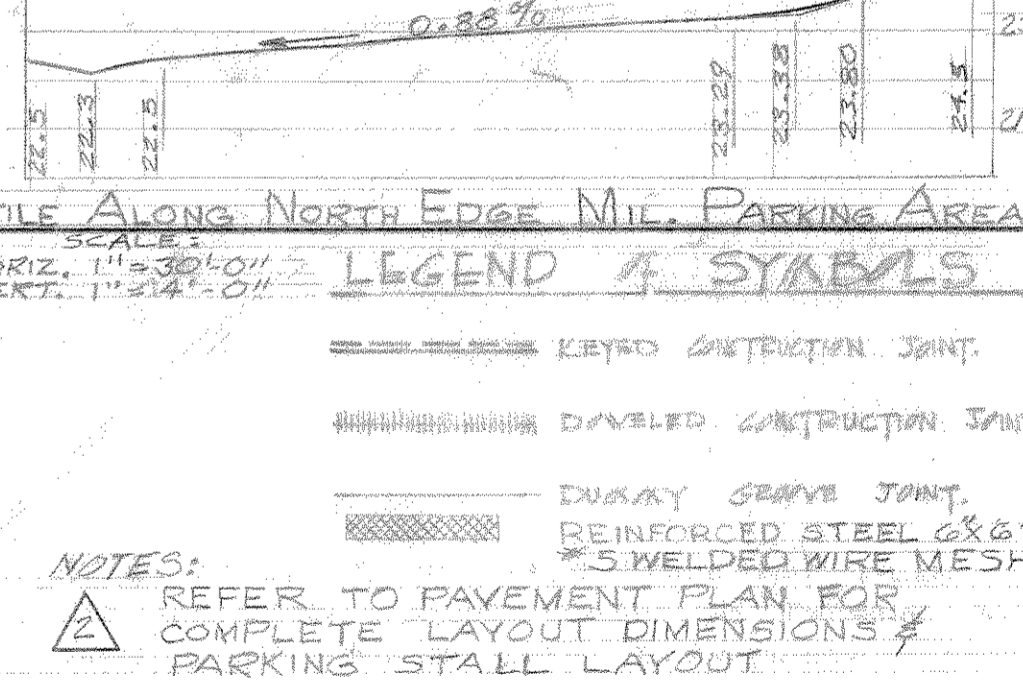 0.88 %
22.5 22.3 22.5 23.29 23.38 23.80 24.5
TILE ALONG NORTH EDGE MIL. PARKING AREA
SCALE:
ORIZ. 1" = 30'-0"
ERT. 1" = 4'-0"
LEGEND & SYMBOLS
KEYED CONSTRUCTION JOINT.
DOWELED CONSTRUCTION JOINT
DUMMY GROOVE JOINT.
REINFORCED STEEL 6"X6"
#5 WELDED WIRE MESH
NOTES:
2 REFER TO PAVEMENT PLAN FOR
COMPLETE LAYOUT DIMENSIONS &
PARKING STALL LAYOUT